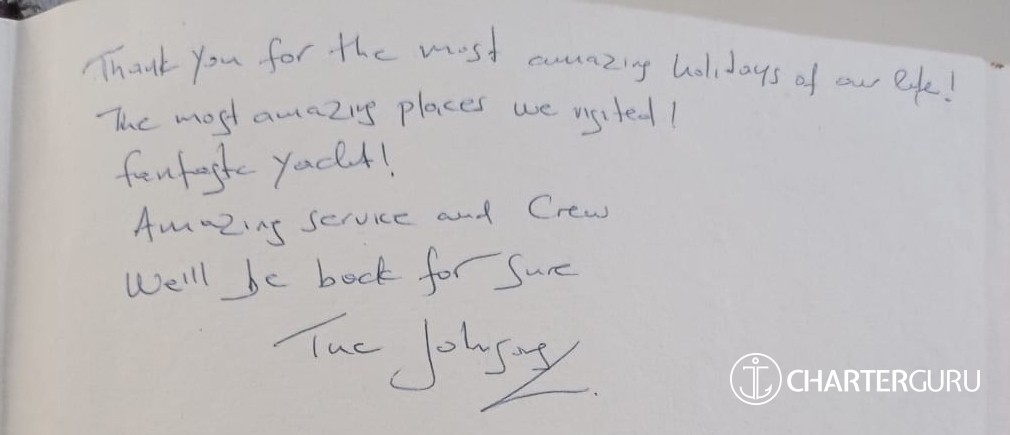 Thank you for the most amazing holidays of our life!
The most amazing places we visited!
fantastc yacht!
Amazing service and Crew
We'll be back for sure
The Johnsons
CHARTERGURU